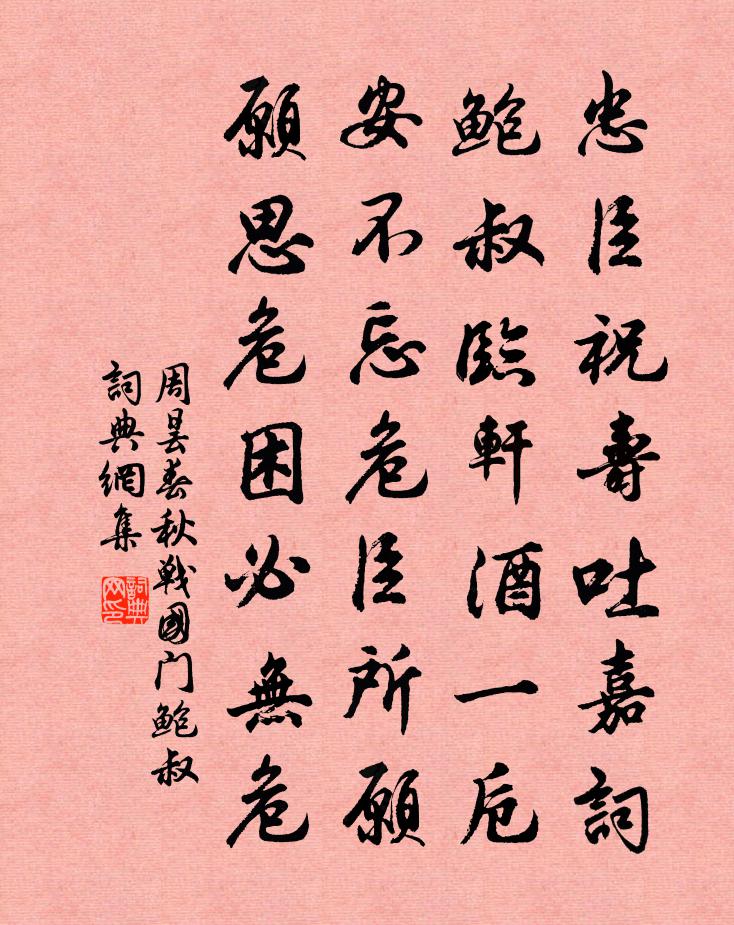 忠臣祝壽吐嘉詞
鮑叔臨軒酒一卮
安不忘危臣所願
願思危困必無危
周曇春秋戰國门鮑叔
詞典網集
詞典
网印